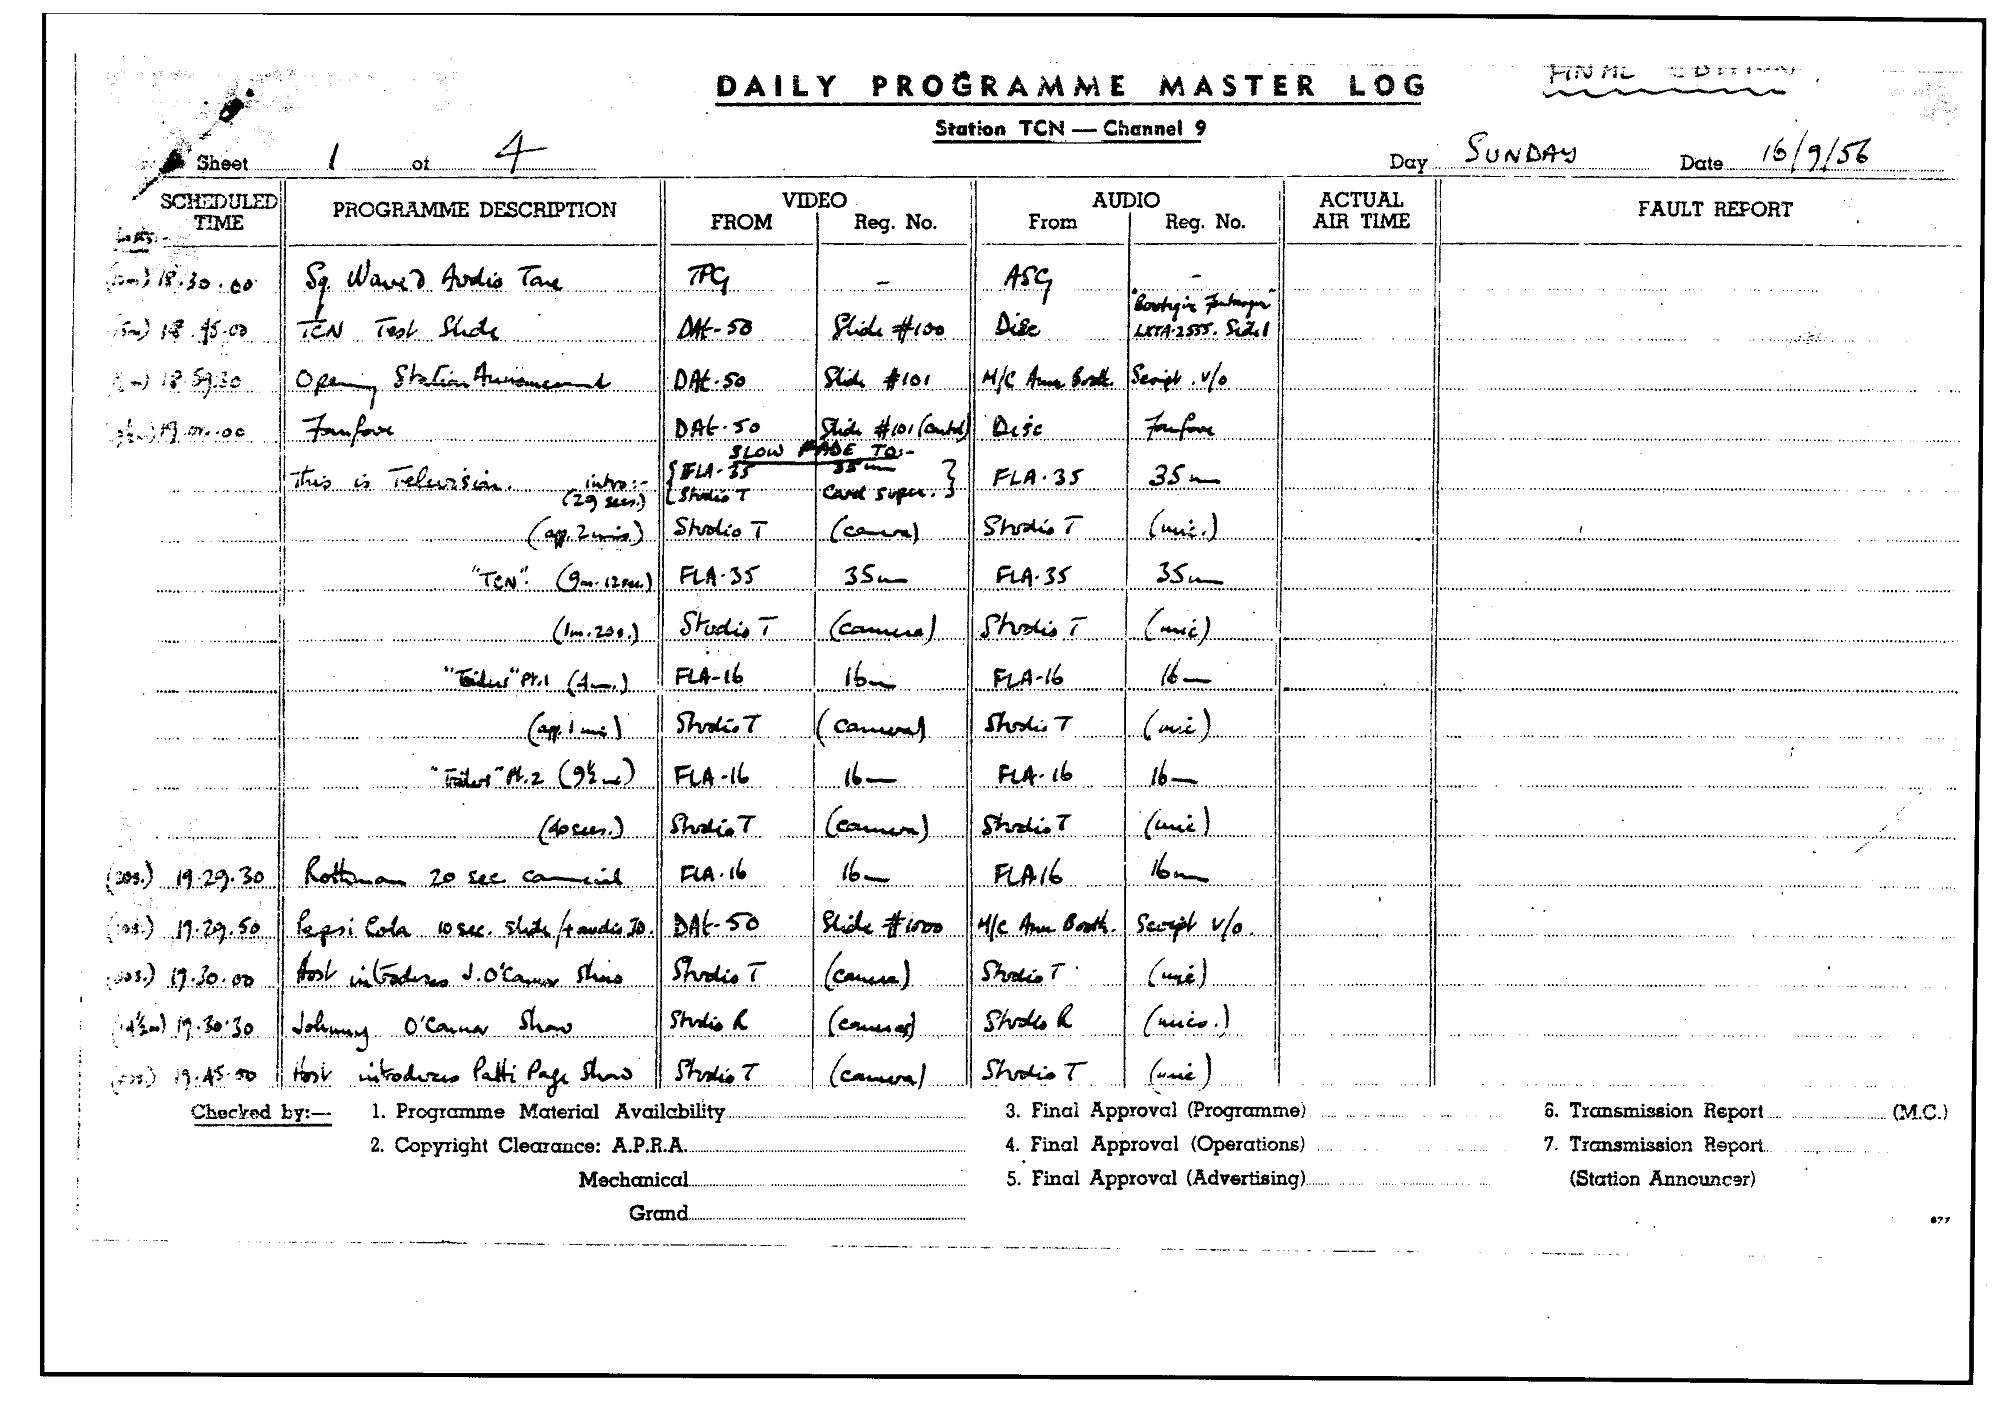 FINAL EDITION
DAILY PROGRAMME MASTER LOG
Station TCN — Channel 9
Sheet 1 of 4 Day SUNDAY Date 16/9/56
SCHEDULED TIME PROGRAMME DESCRIPTION VIDEO FROM Reg. No. AUDIO From Reg. No. ACTUAL AIR TIME FAULT REPORT
18.30.00 Sq. Wave & Audio Tone TPG - ASG -
18.45.00 TCN Test Slide DAt-50 Slide #100 Disc LXTA-2555. Side 1
18.59.30 Opening Station Announcement DAt-50 Slide #101 M/C Ann Booth. Script v/o
19.00.00 Fanfare DAt-50 Slide #101 (contd) Disc Fanfare
SLOW FADE TO:-
This is Television. intro:- (29 secs.) {FLA-35 35m} FLA-35 35m
{Studio T Card super.}
(app. 2 mins.) Studio T (camera) Studio T (mic.)
"TCN". (9m. 12sec.) FLA-35 35m FLA-35 35m
(1m. 20s.) Studio T (camera) Studio T (mic)
Pt.1 (4m.) FLA-16 16m FLA-16 16m
(app. 1 min) Studio T (camera) Studio T (mic)
Pt.2 (9½m) FLA-16 16m FLA-16 16m
(40secs.) Studio T (camera) Studio T (mic)
(20s.) 19.29.30 Rothman 20 sec. commercial FLA-16 16m FLA16 16m
(10s.) 19.29.50 Pepsi Cola 10 sec. slide/+ audio DAt-50 Slide #1000 M/C Ann Booth. Script v/o.
(30s.) 19.30.00 Host introduces J. O'Connor Show Studio T (camera) Studio T (mic)
(14½m) 19.30.30 Johnny O'Connor Show Studio R (cameras) Studio R (mics.)
19.45.00 Host introduces Patti Page Show Studio T (camera) Studio T (mic)
Checked by:— 1. Programme Material Availability 3. Final Approval (Programme) 6. Transmission Report (M.C.)
2. Copyright Clearance: A.P.R.A. 4. Final Approval (Operations) 7. Transmission Report
Mechanical 5. Final Approval (Advertising) (Station Announcer)
Grand